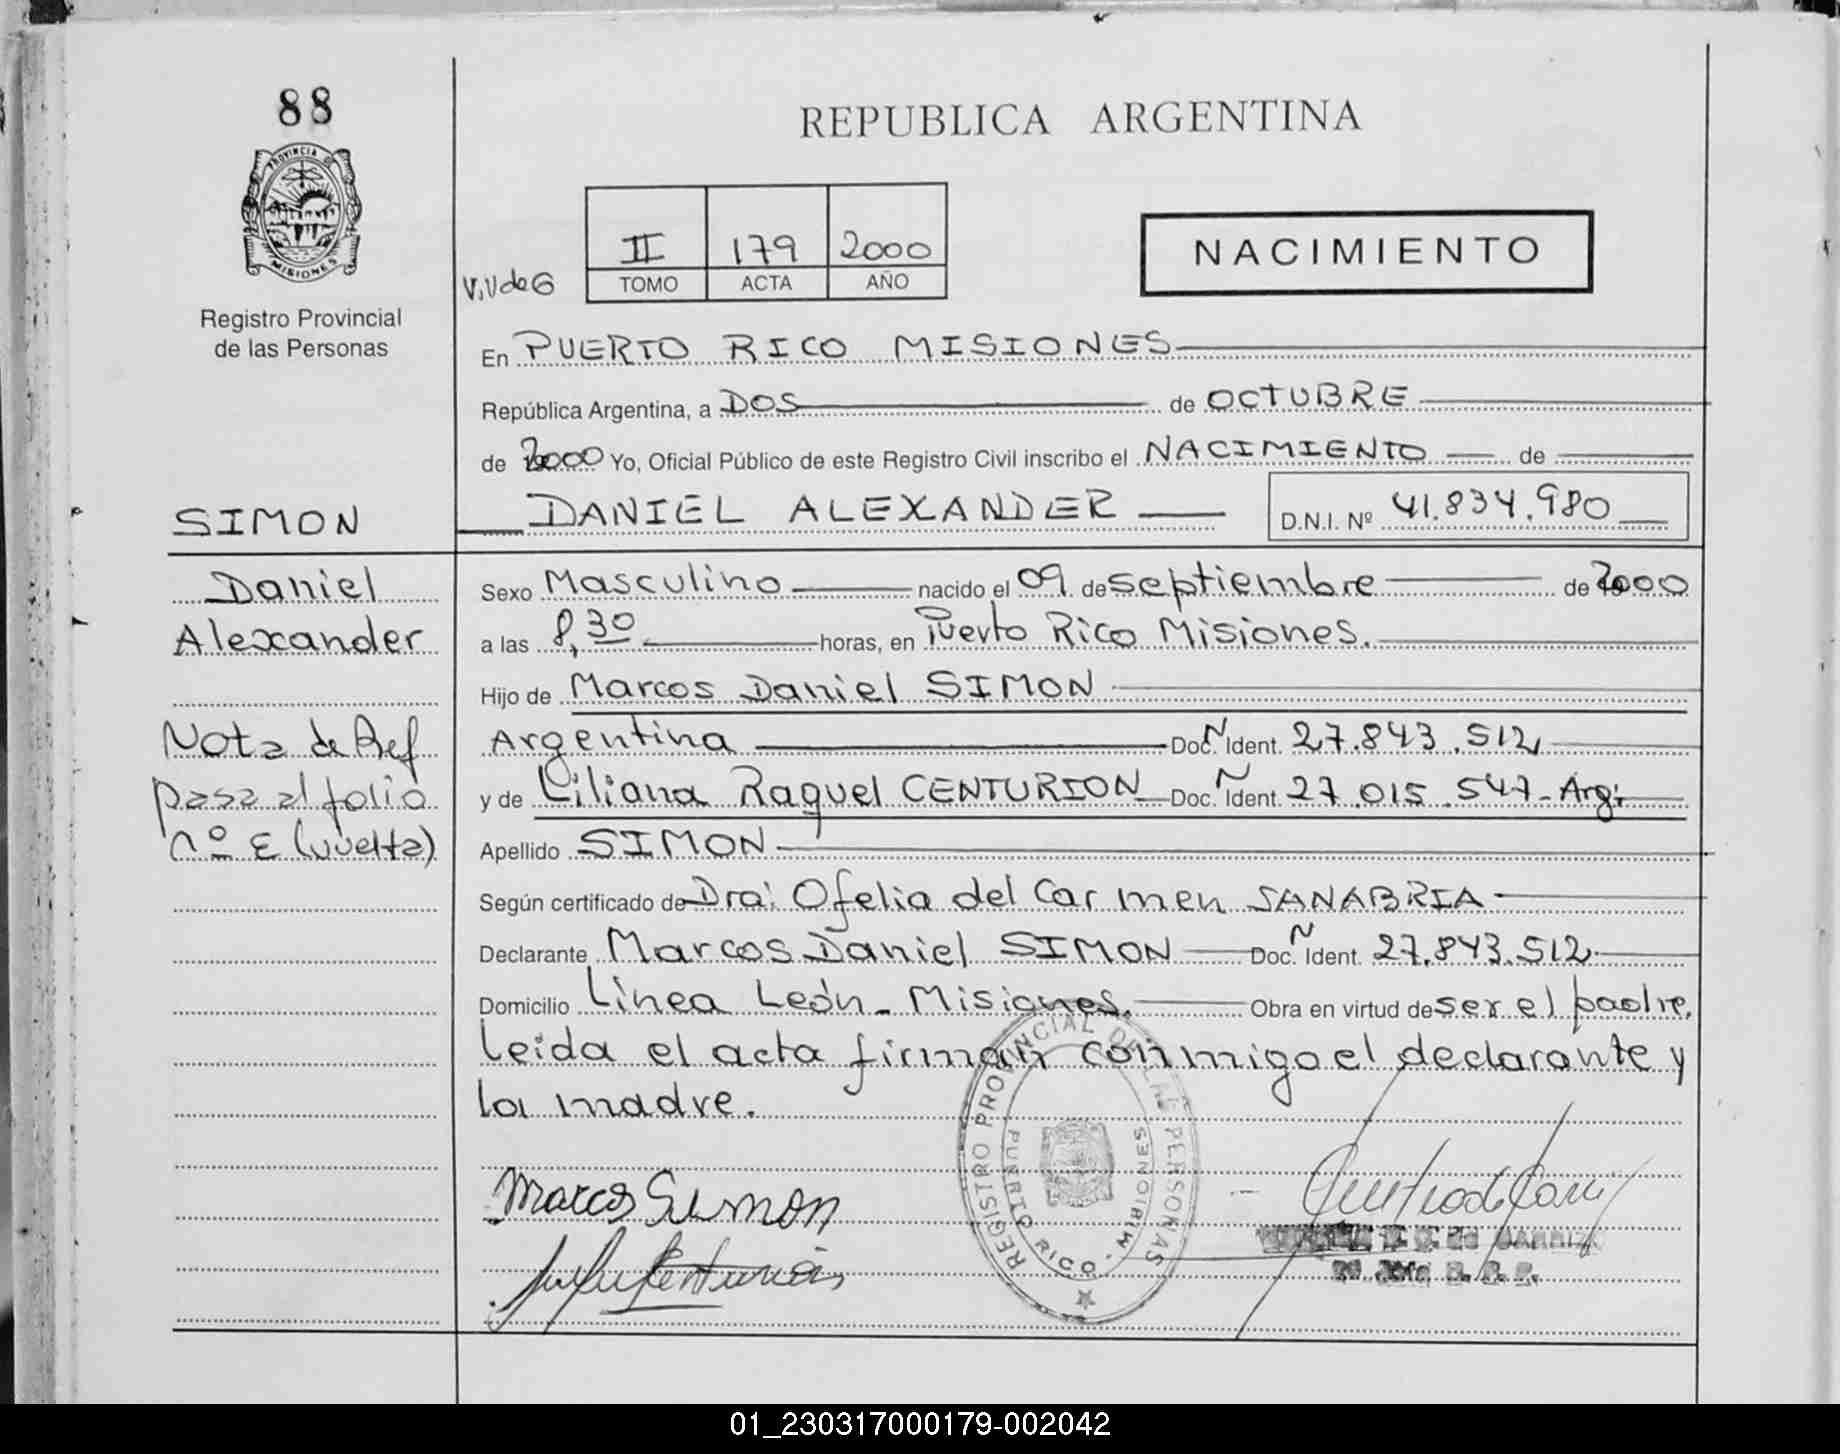 88
PROVINCIA DE
MISIONES
Registro Provincial
de las Personas
REPUBLICA ARGENTINA
II 179 2000
TOMO ACTA AÑO
NACIMIENTO
En PUERTO RICO MISIONES
República Argentina, a DOS de OCTUBRE
de 2000 Yo, Oficial Público de este Registro Civil inscribo el NACIMIENTO de
SIMON
DANIEL ALEXANDER D.N.I. Nº 41.834.980
Daniel
Alexander
Nota de Ref
pasa al folio
nº E (vuelta)
Sexo Masculino nacido el 09 de septiembre de 2000
a las 8,30 horas, en Puerto Rico Misiones.
Hijo de Marcos Daniel SIMON
Argentina Doc. N Ident. 27.843.512
y de Liliana Raquel CENTURION Doc. N Ident. 27.015.547- Arg.
Apellido SIMON
Según certificado de Dra: Ofelia del Carmen SANABRIA
Declarante Marcos Daniel SIMON Doc. N Ident. 27.843.512
Domicilio Línea León - Misiones. Obra en virtud de ser el padre.
Leida el acta firman conmigo el declarante y
la madre.
REGISTRO PROVINCIAL DE LAS PERSONAS
PUERTO RICO - MISIONES
Marcos Simon
01_230317000179-002042